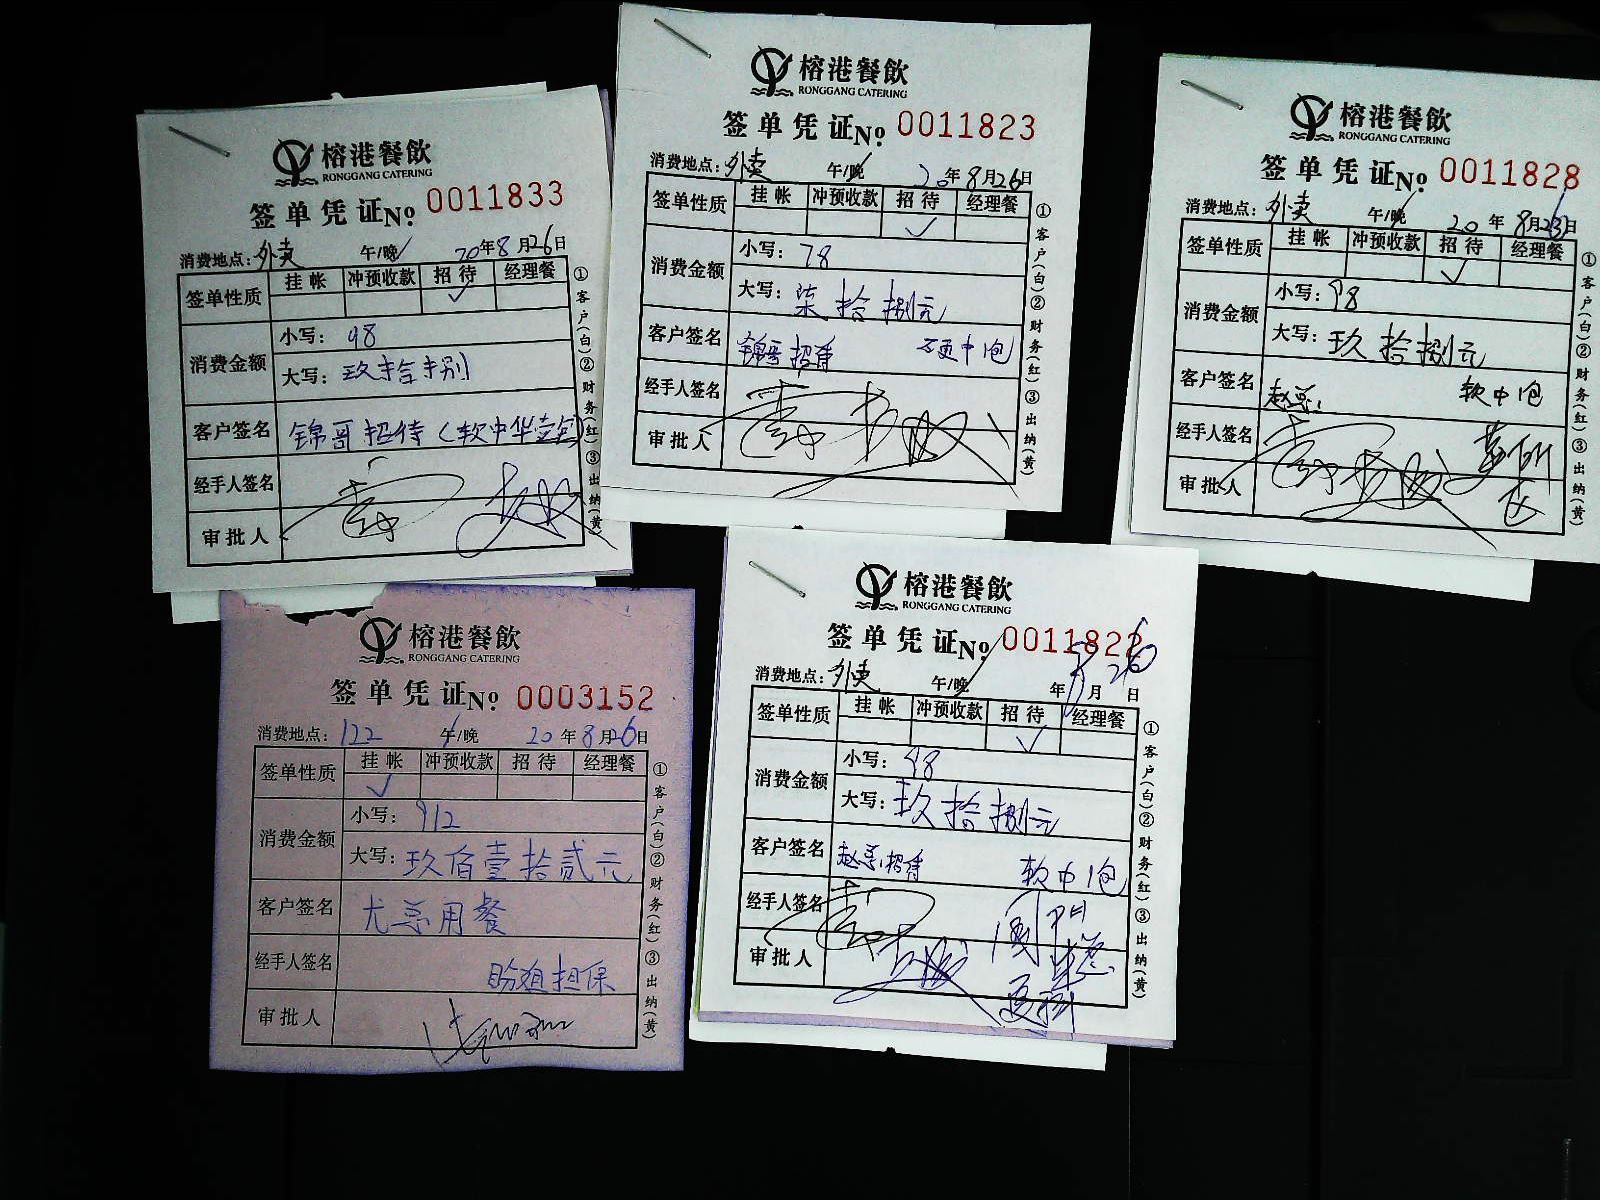 榕港餐飲
RONGGANG CATERING
签单凭证 No. 0011833
消费地点：外卖 午/晚 20年8月26日
签单性质 挂帐 冲预收款 招待 经理餐
✓
消费金额 小写：98
大写：玖拾捌
客户签名 锦哥招待（软中华壹包）
经手人签名
审批人
①客户(白)②财务(红)③出纳(黄)
榕港餐飲
RONGGANG CATERING
签单凭证 No. 0011823
消费地点：外卖 午/晚 20年8月26日
签单性质 挂帐 冲预收款 招待 经理餐
✓
消费金额 小写：78
大写：柒拾捌元
客户签名 锦哥招待 硬中1包
经手人签名
审批人
①客户(白)②财务(红)③出纳(黄)
榕港餐飲
RONGGANG CATERING
签单凭证 No. 0011828
消费地点：外卖 午/晚 20年8月26日
签单性质 挂帐 冲预收款 招待 经理餐
✓
消费金额 小写：98
大写：玖拾捌元
客户签名 赵总 软中1包
经手人签名
审批人
①客户(白)②财务(红)③出纳(黄)
榕港餐飲
RONGGANG CATERING
签单凭证 No. 0003152
消费地点：122 午/晚 20年8月26日
签单性质 挂帐 冲预收款 招待 经理餐
✓
消费金额 小写：912
大写：玖佰壹拾贰元
客户签名 尤总用餐
经手人签名 盼姐担保
审批人
①客户(白)②财务(红)③出纳(黄)
榕港餐飲
RONGGANG CATERING
签单凭证 No. 0011822
消费地点：外卖 午/晚 年8月26日
签单性质 挂帐 冲预收款 招待 经理餐
✓
消费金额 小写：98
大写：玖拾捌元
客户签名 赵总招待 软中1包
经手人签名
审批人
①客户(白)②财务(红)③出纳(黄)